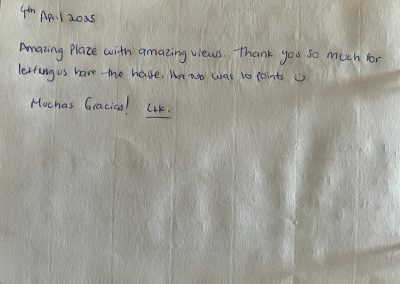 4th April 2025
Amazing Plaze with amazing views. Thank you so much for
letting us have the house. Hot Tub was 10 points ☺
Muchas Gracias!